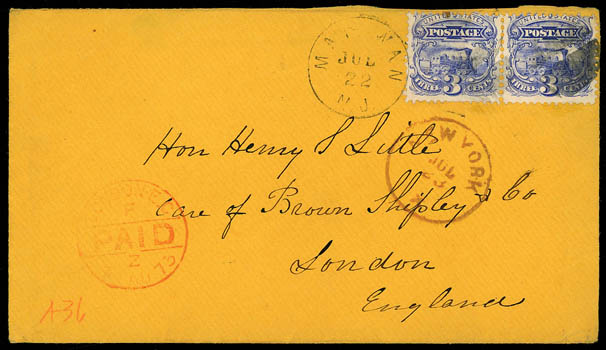 UNITED STATES
POSTAGE
THREE 3 CENTS
UNITED STATES
POSTAGE
THREE 3 CENTS
JUL
22
N.J.
NEW YORK
JUL
23
Hon Henry S Little
Care of Brown Shipley & Co
London
England
PAID
A36